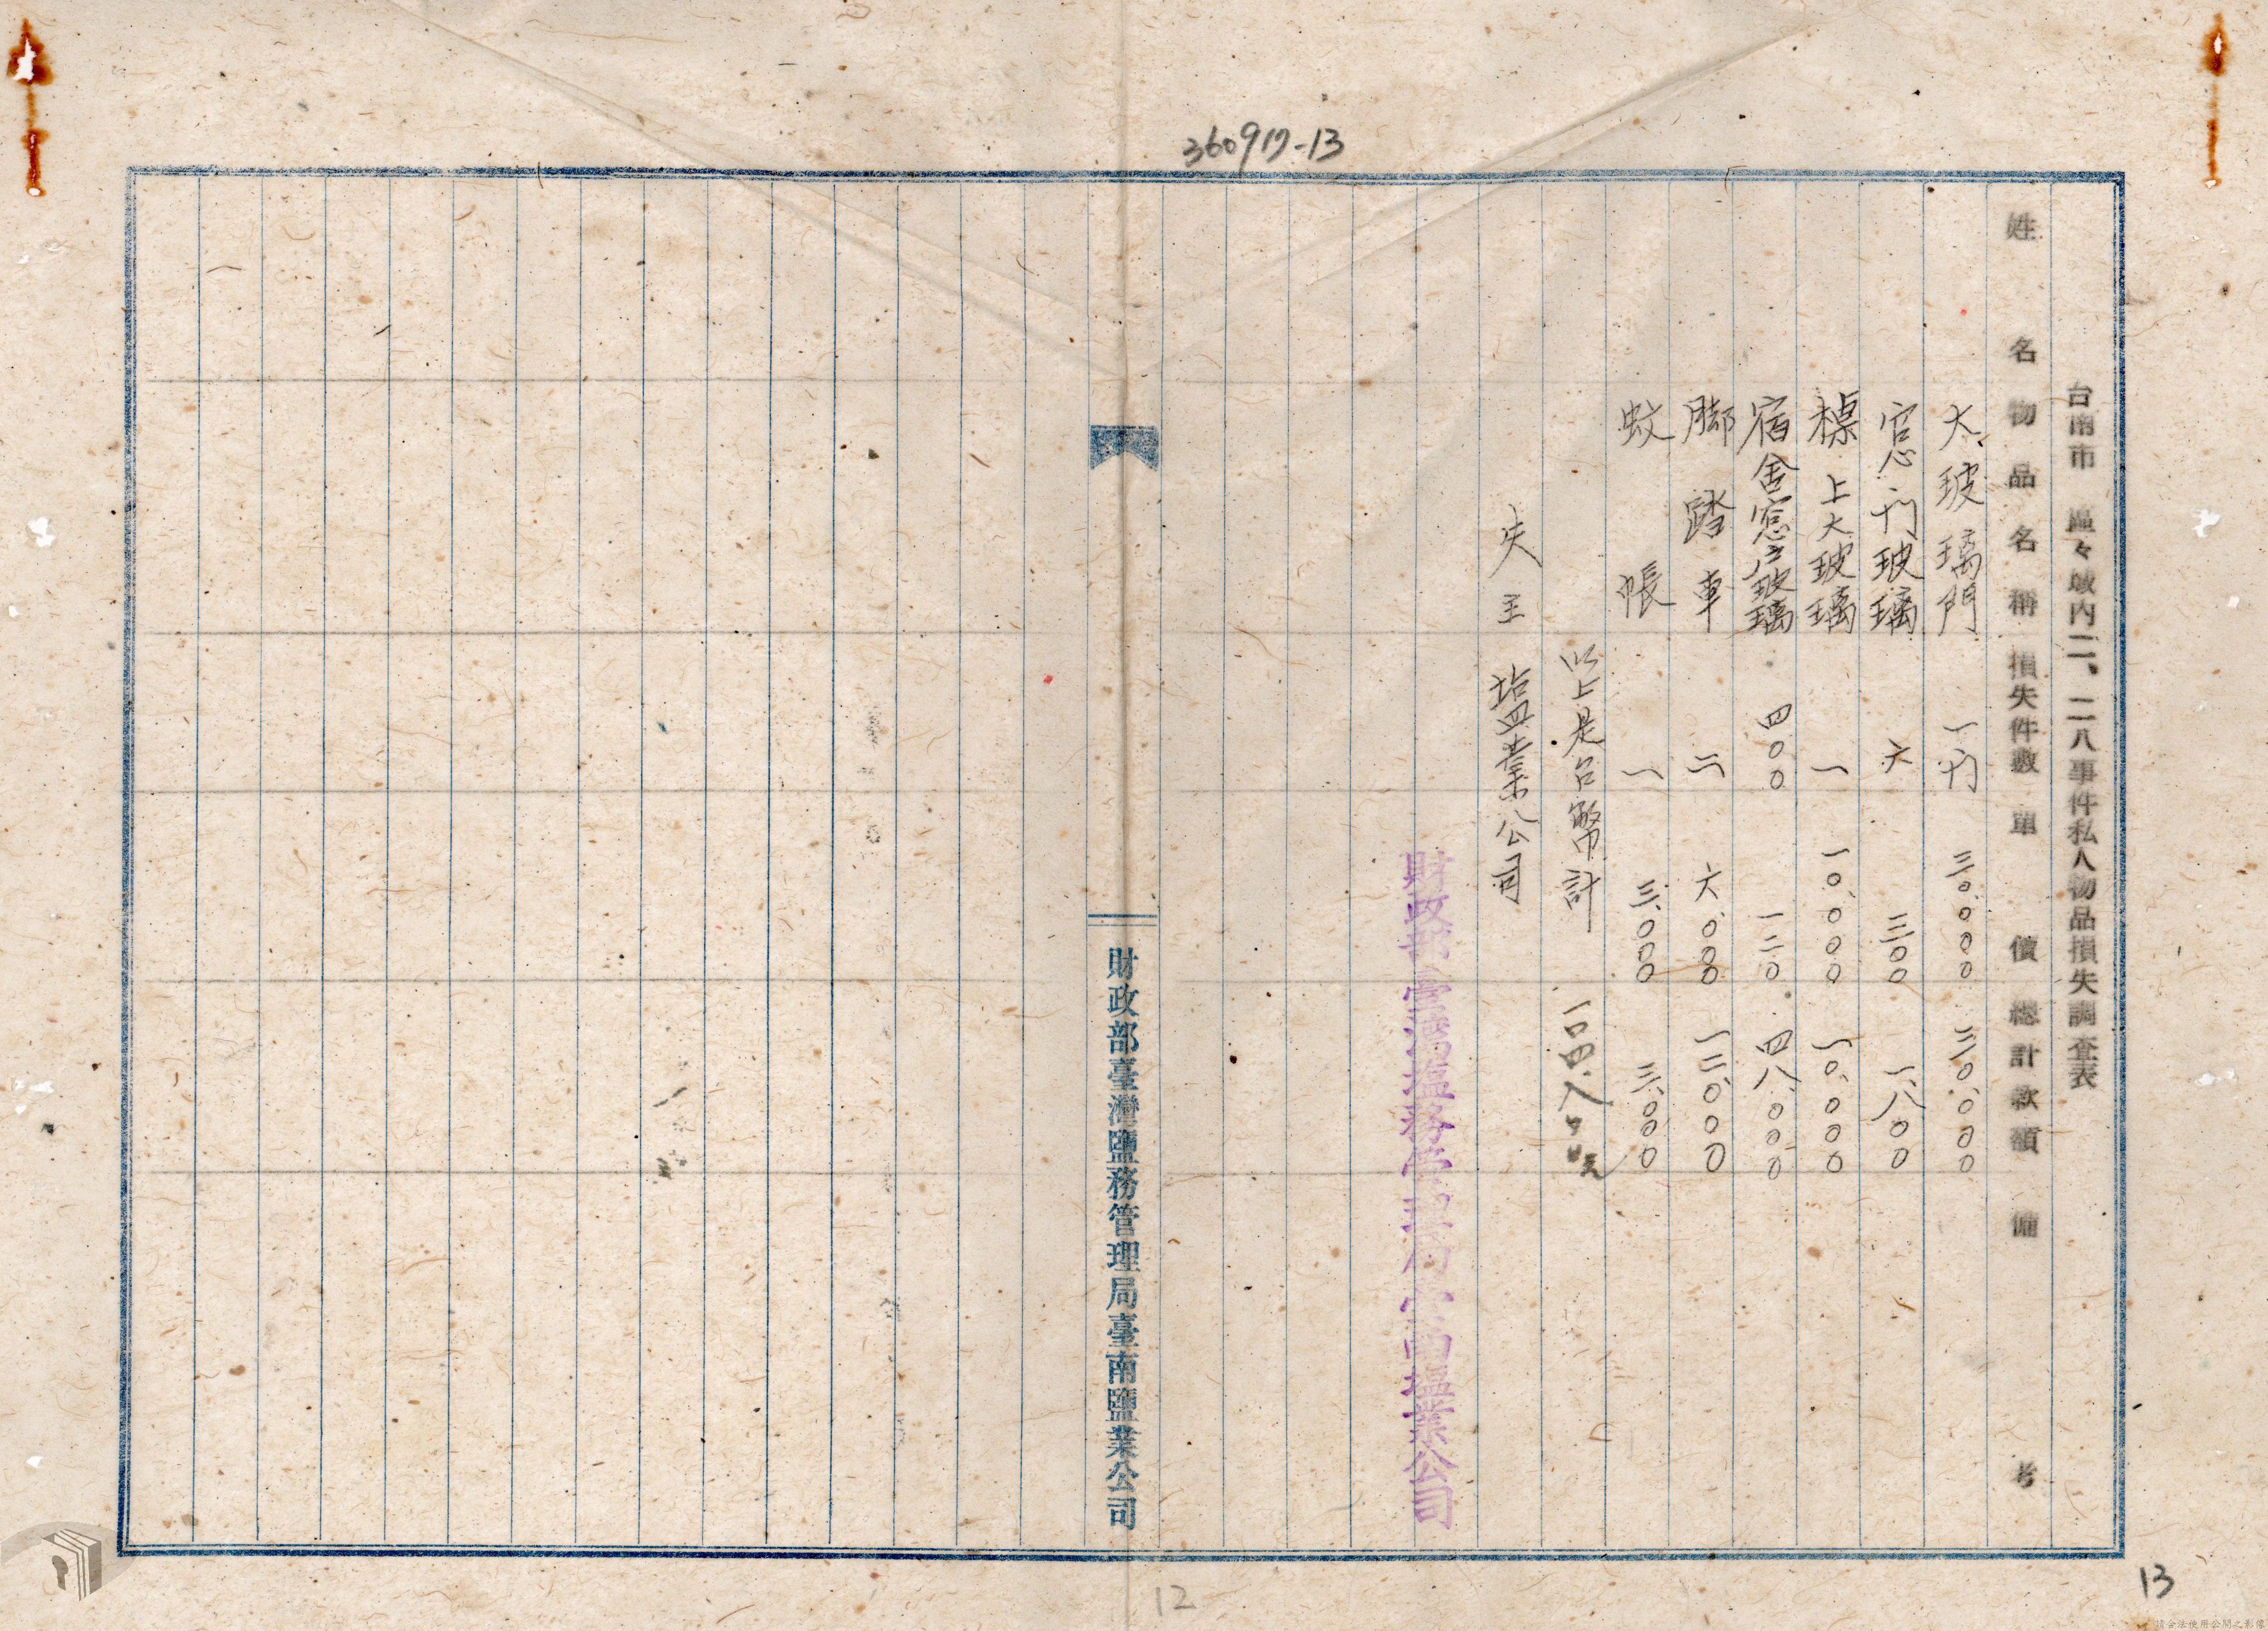 360917-13
台南市 區々域內二、二八事件私人物品損失調查表
姓 名 物品名稱 損失件數 單 價 總計款額 備 考
大玻璃門 一刊 三〇.〇〇〇 三〇.〇〇〇
窓刊玻璃 六 三〇〇 一.八〇〇
標上大玻璃 一 一〇.〇〇〇 一〇.〇〇〇
宿舍窓戶玻璃 四〇〇 一二〇 四八.〇〇〇
脚踏車 二 六.〇〇〇 一二.〇〇〇
蚊帳 一 三.〇〇〇 三.〇〇〇
以上是台幣計 一〇四.八〇〇
失主 塩業公司
財政部臺灣鹽務管理局臺南鹽業公司
財政部臺灣鹽務管理局臺南鹽業公司
12
13
請合法使用公開之影像